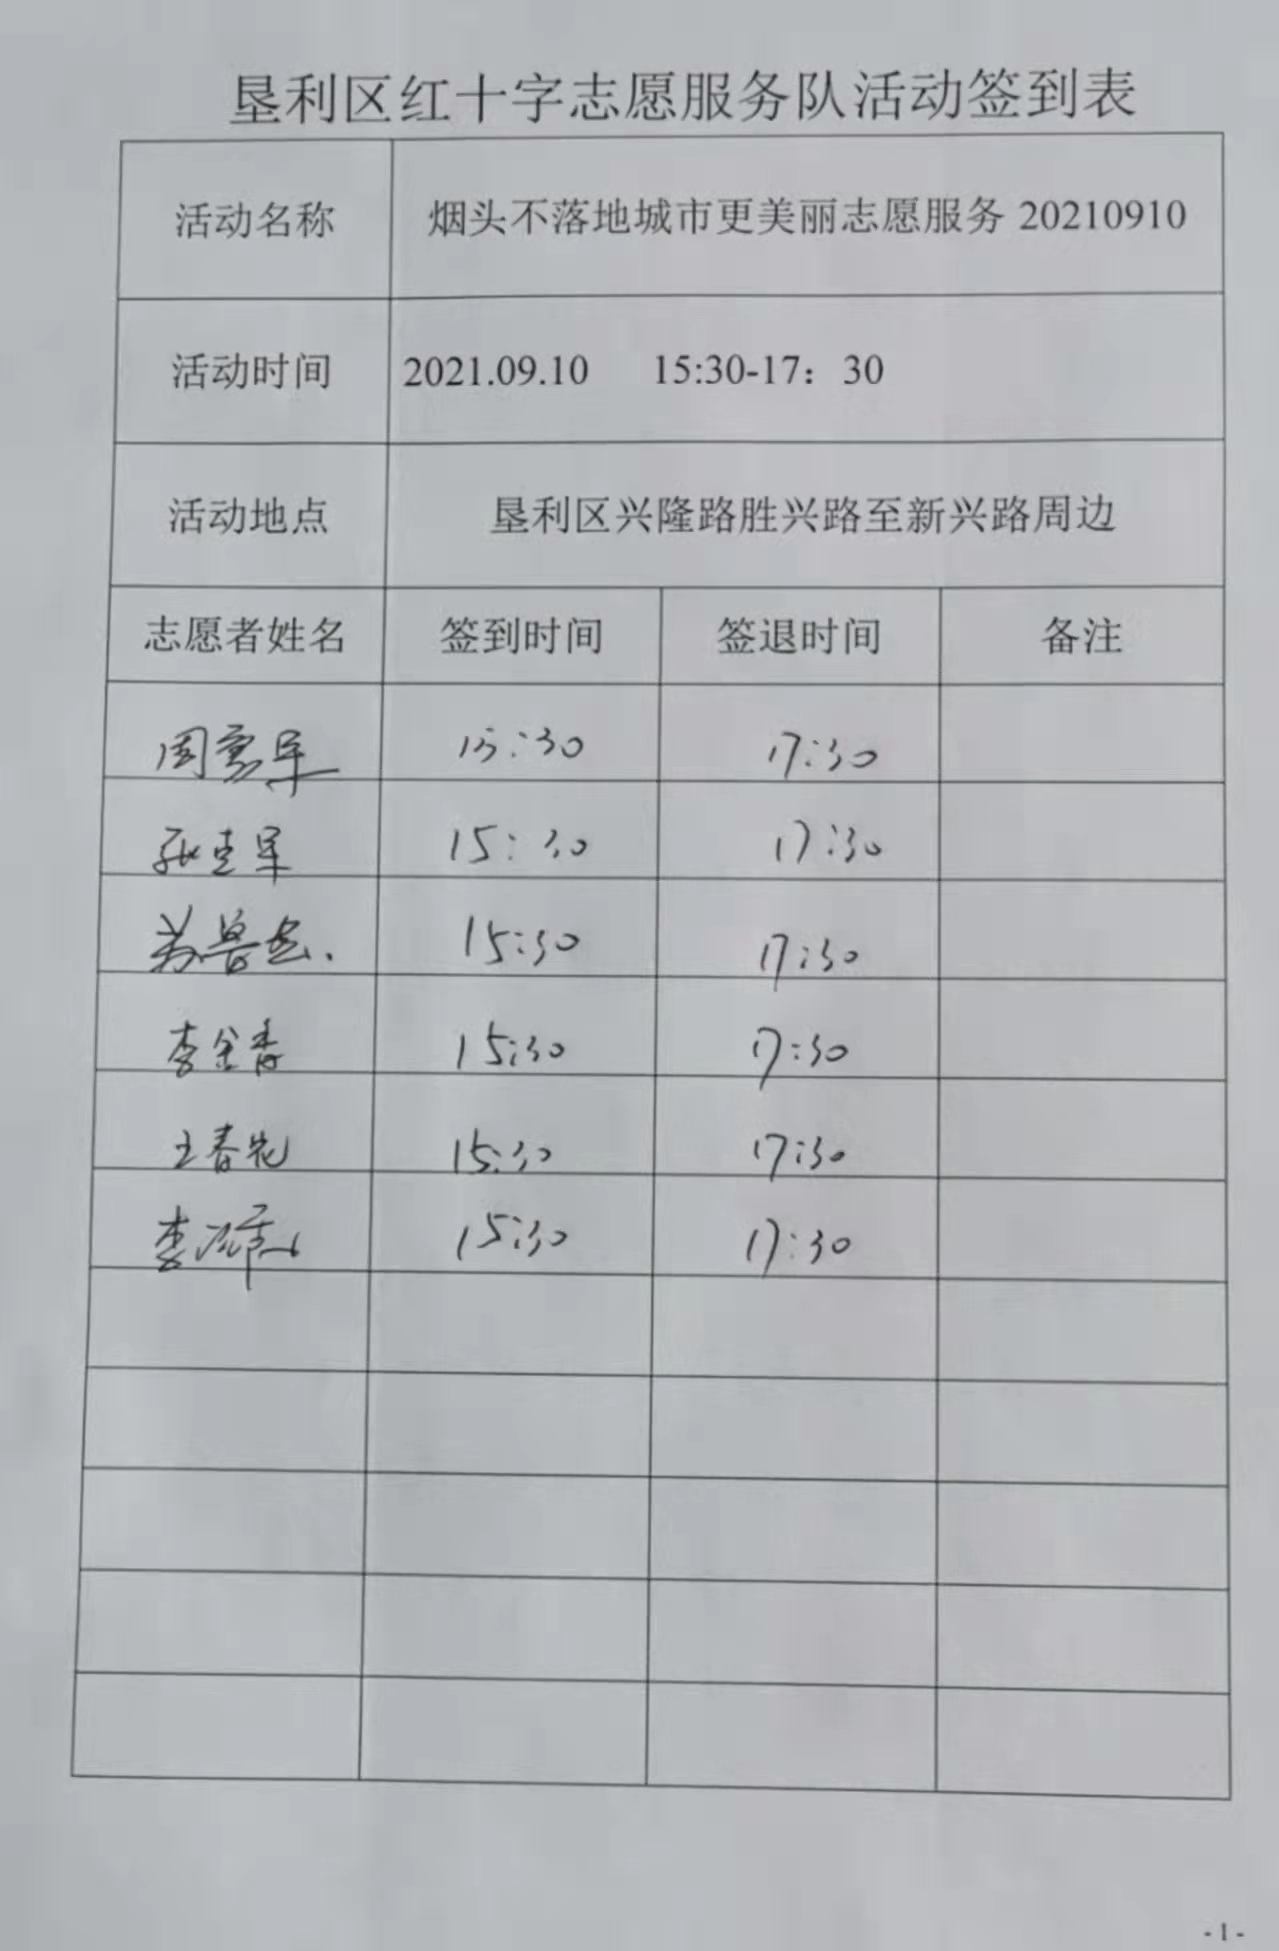 垦利区红十字志愿服务队活动签到表
活动名称 烟头不落地城市更美丽志愿服务 20210910
活动时间 2021.09.10 15:30-17：30
活动地点 垦利区兴隆路胜兴路至新兴路周边
志愿者姓名 签到时间 签退时间 备注
15:30 17:30
15:30 17:30
15:30 17:30
李金香 15:30 17:30
王春 15:30 17:30
李 15:30 17:30
- 1 -